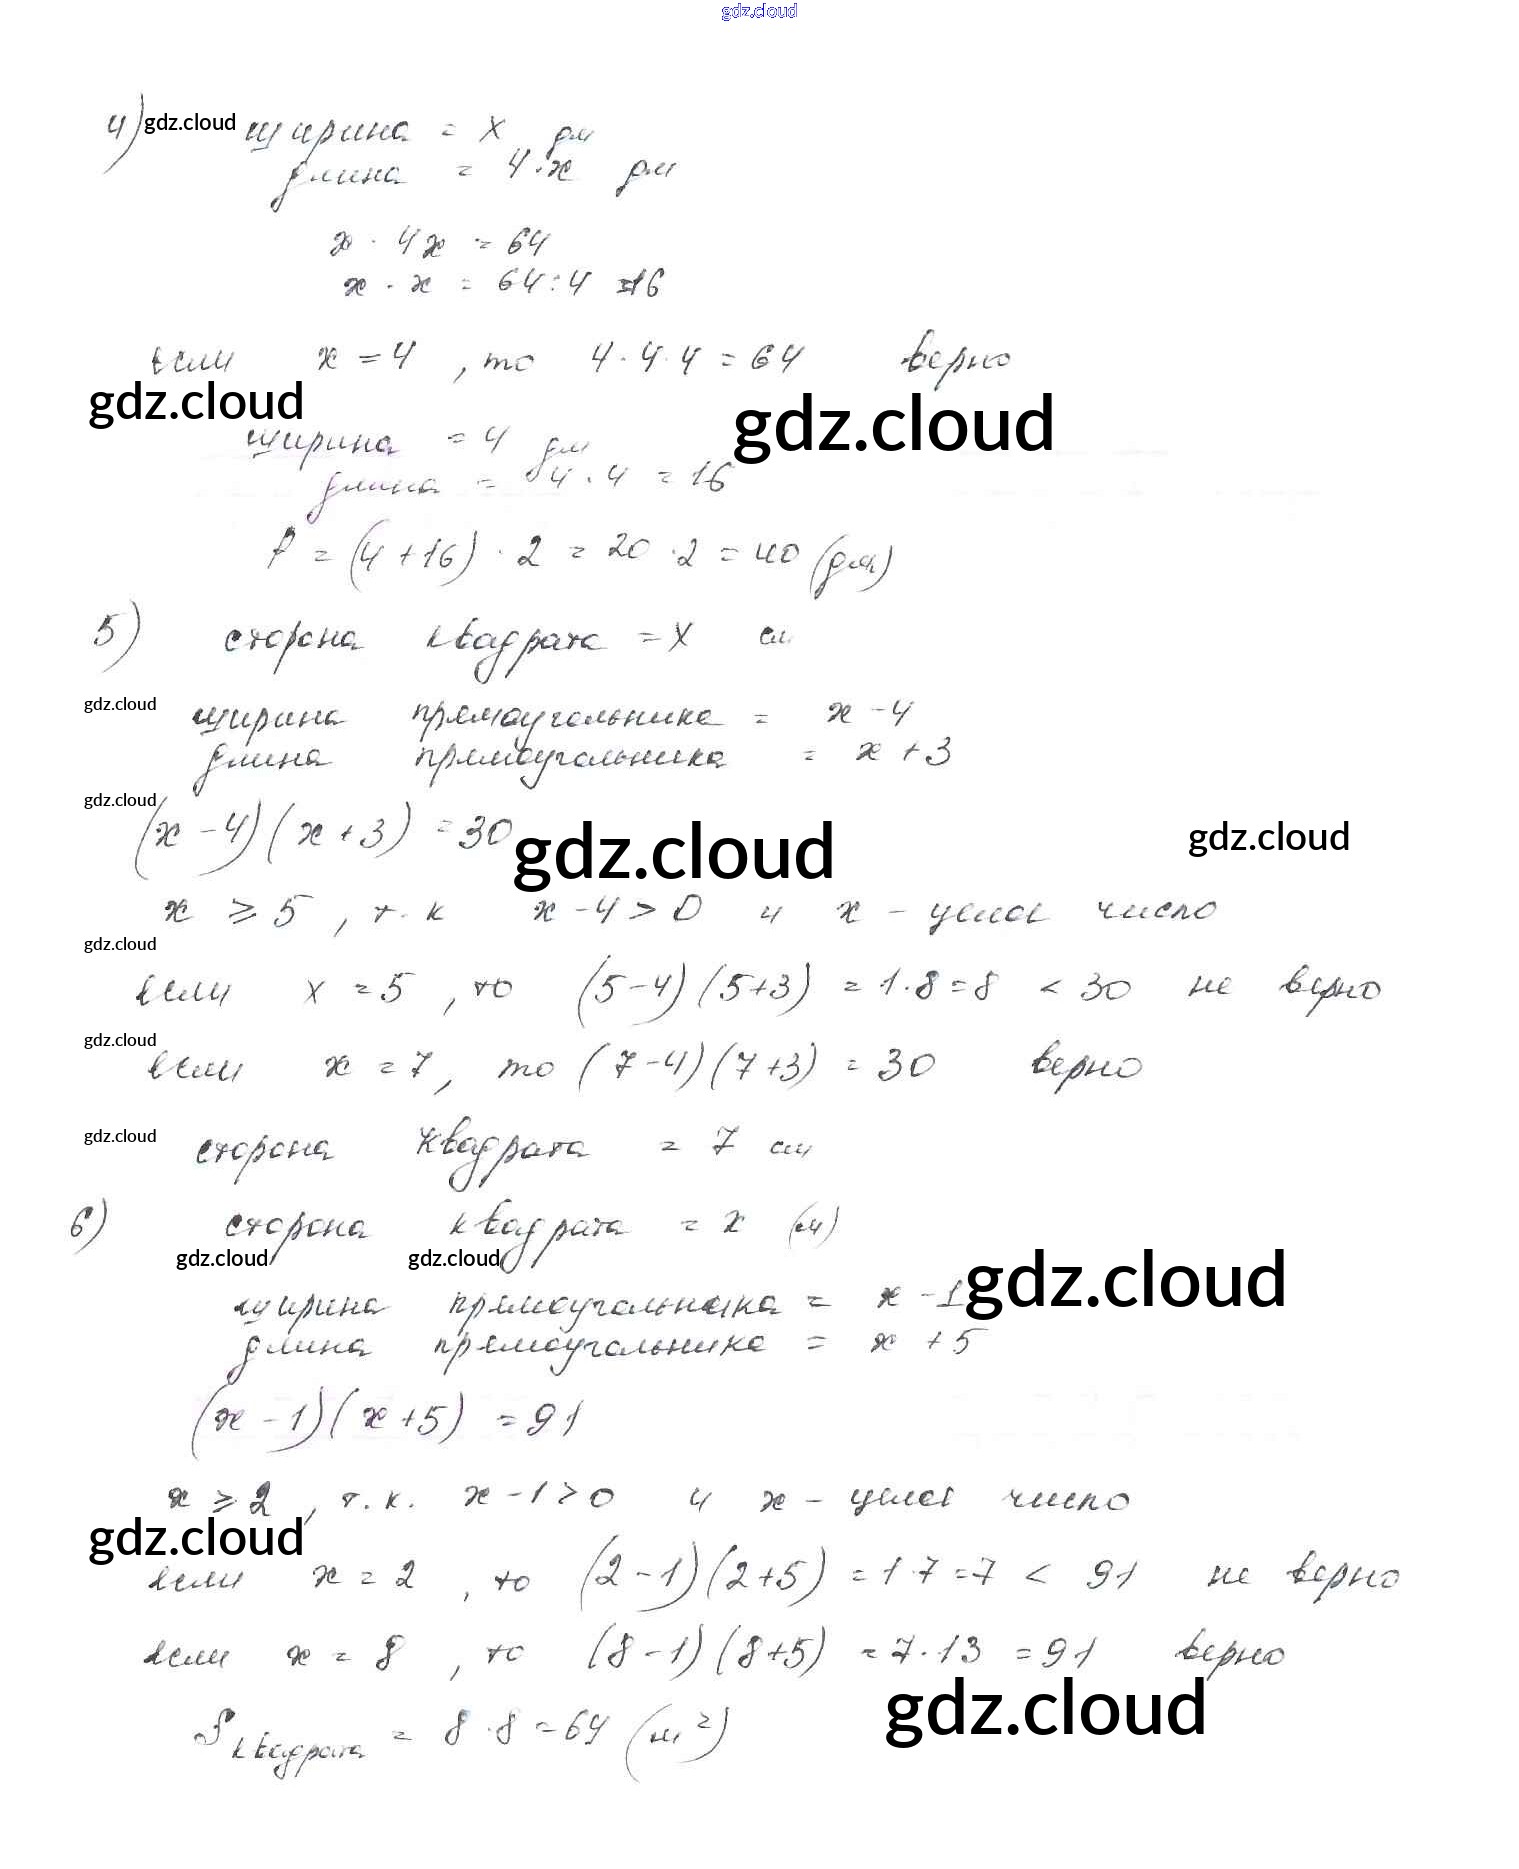 gdz.cloud
4) gdz.cloud ширина = x дм
длина = 4·x дм
x · 4x = 64
x · x = 64:4 =16
если x = 4 , то 4·4·4 = 64 верно
gdz.cloud gdz.cloud
ширина = 4 дм
длина = 4·4 = 16
P = (4+16)·2 = 20·2 = 40 (дм)
5) сторона квадрата = x см
gdz.cloud ширина прямоугольника = x - 4
длина прямоугольника = x + 3
gdz.cloud
(x - 4)(x + 3) = 30 gdz.cloud gdz.cloud
x ⩾ 5 , т.к x - 4 > 0 и x - целое число
gdz.cloud
если x = 5 , то (5-4)(5+3) = 1·8 = 8 < 30 не верно
gdz.cloud
если x = 7, то (7-4)(7+3) = 30 верно
gdz.cloud сторона квадрата = 7 см
6) сторона квадрата = x (м)
gdz.cloud gdz.cloud gdz.cloud
ширина прямоугольника = x - 1
длина прямоугольника = x + 5
(x - 1)(x + 5) = 91
x ⩾ 2 , т.к. x - 1 > 0 и x - целое число
gdz.cloud
если x = 2 , то (2-1)(2+5) = 1·7 = 7 < 91 не верно
если x = 8 , то (8-1)(8+5) = 7·13 = 91 верно
gdz.cloud
S квадрата = 8·8 = 64 (м²)